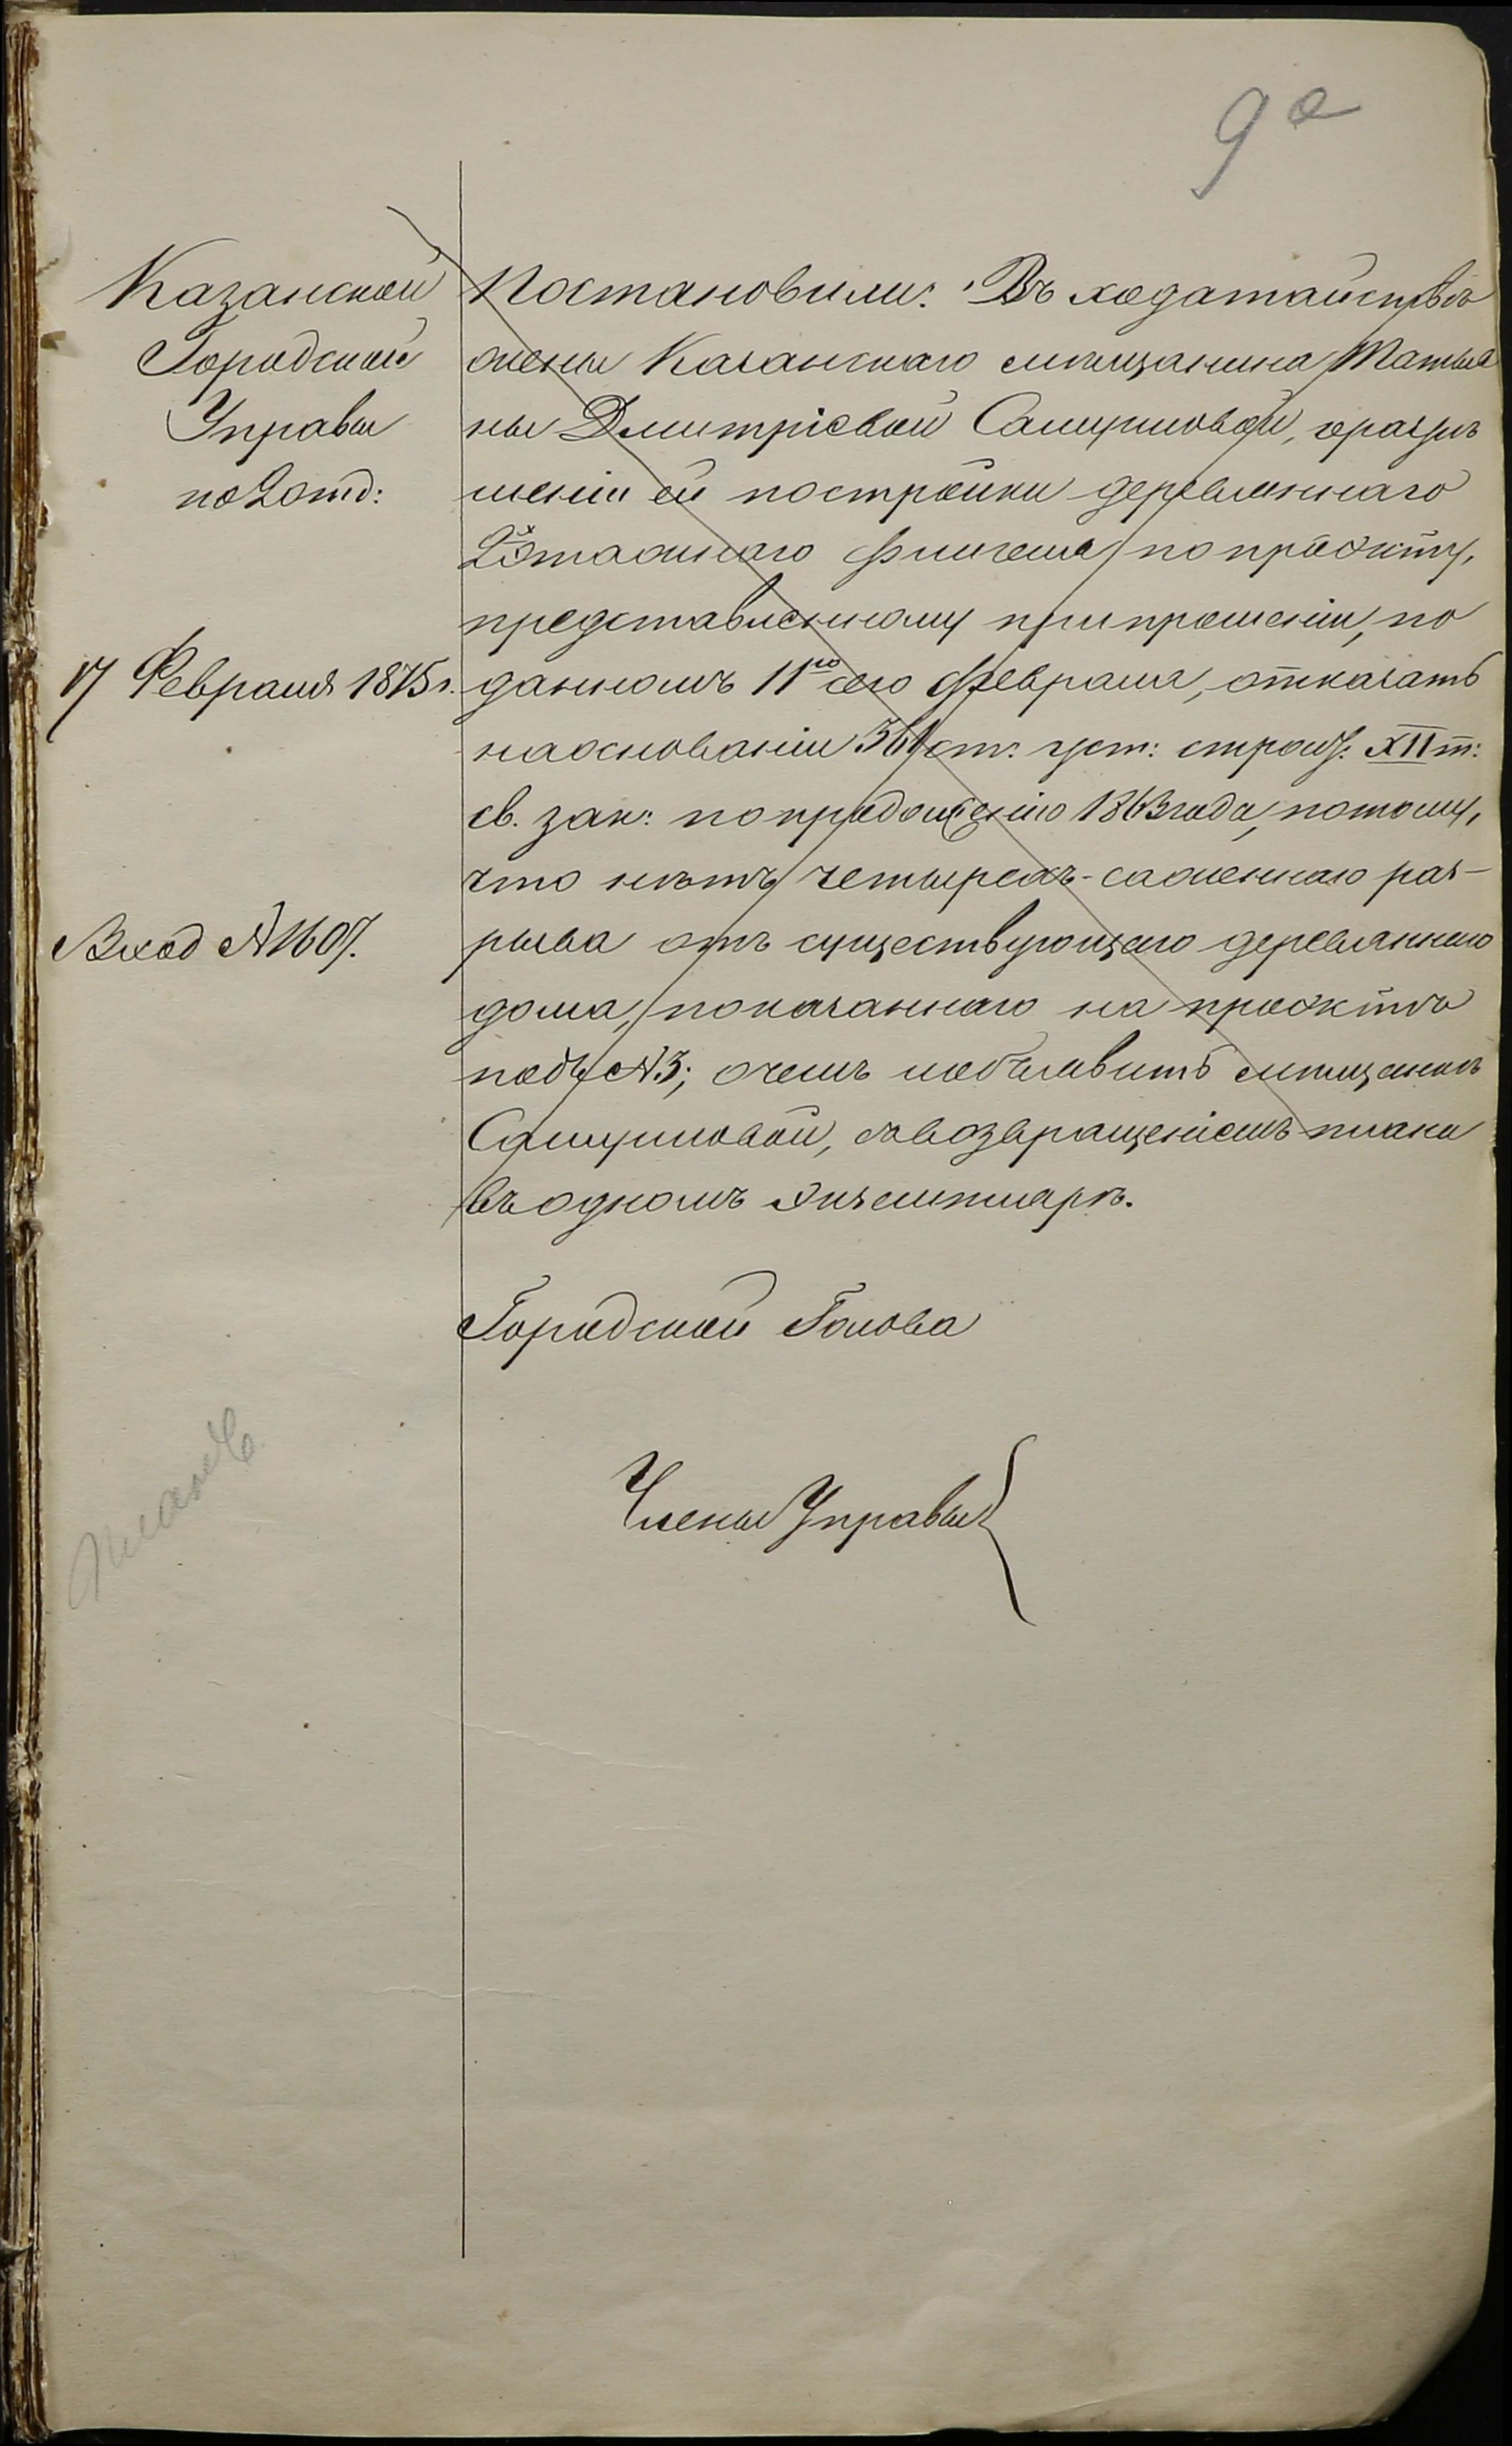 9а
Казанской
Городской
Управы
по 2 отд:
17 Февраля 1875 г.
Вход № 1607.
Постановили: Въ ходатайствѣ
жены Казанскаго мѣщанина Татья
ны Дмитріевой Сапуновой, о разрѣ
шеніи ей постройки деревяннаго
2х этажнаго флигеля по проэкту,
представленному при прошеніи, по
данномъ 11го сего Февраля, отказать
на основаніи 361 ст: уст: строит: XII т:
св. зак: по продолженію 1863 года, потому,
что нѣтъ четырехъ-саженнаго раз-
рыва отъ существующаго деревяннаго
дома, показаннаго на проэктѣ
подъ № 3; о чемъ и объявить мѣщанкѣ
съ возвращеніемъ плана
въ одномъ экземплярѣ.
Городской Голова
Члены Управы
планъ